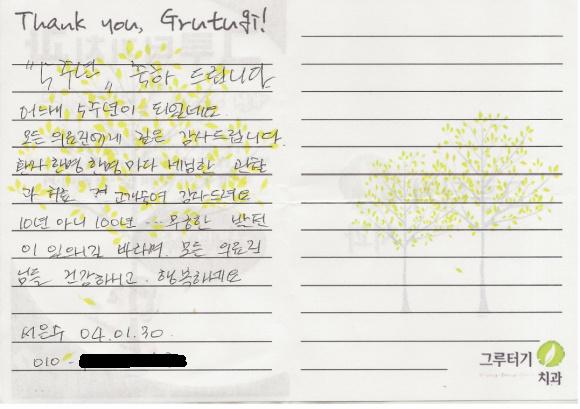 Thank you, Grutugi!
"5주년" 축하 드립니다
어느새 5주년이 되었네요
모든 의료진에게 깊은 감사드립니다.
환자 한명 한명 마다 세심한 관찰
과 치료 고개숙여 감사드려요
10년 아니 100년 ... 무궁한 발전
이 있으시길 바라며. 모든 의료진
님들 건강하시고. 행복하세요
서은수 04.01.30.
010 -
그루터기
치과